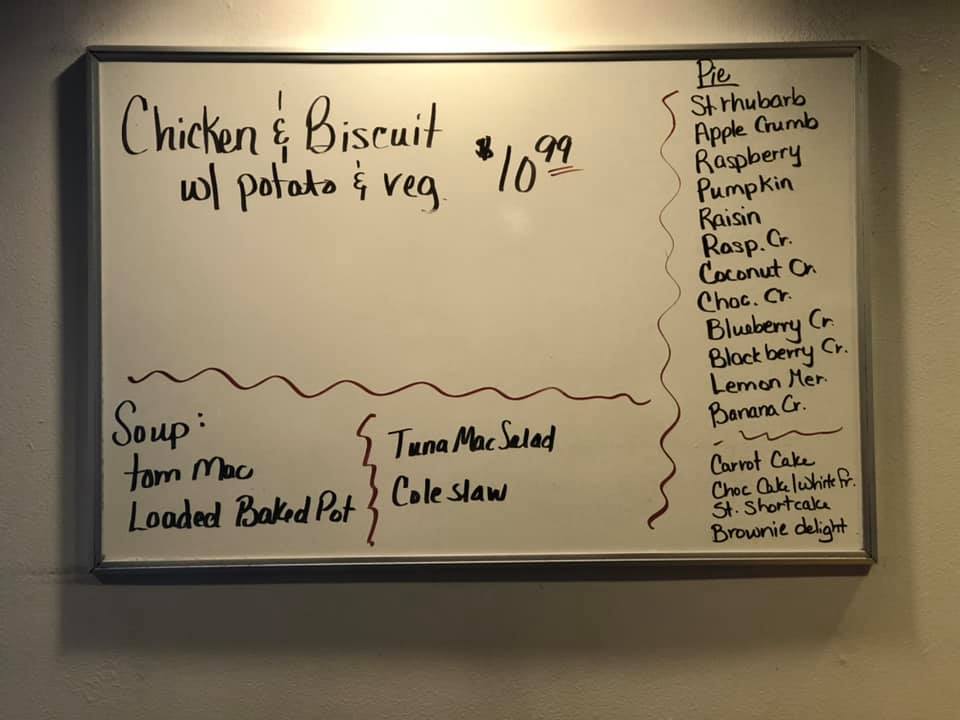 Chicken & Biscuit
w/ potato & veg. $10.99
Soup:
tom Mac
Loaded Baked Pot
Tuna Mac Salad
Cole slaw
Pie
St. rhubarb
Apple Crumb
Raspberry
Pumpkin
Raisin
Rasp. Cr.
Coconut Cr.
Choc. Cr.
Blueberry Cr.
Blackberry Cr.
Lemon Mer.
Banana Cr.
Carrot Cake
Choc Cake/White fr.
St. Shortcake
Brownie delight